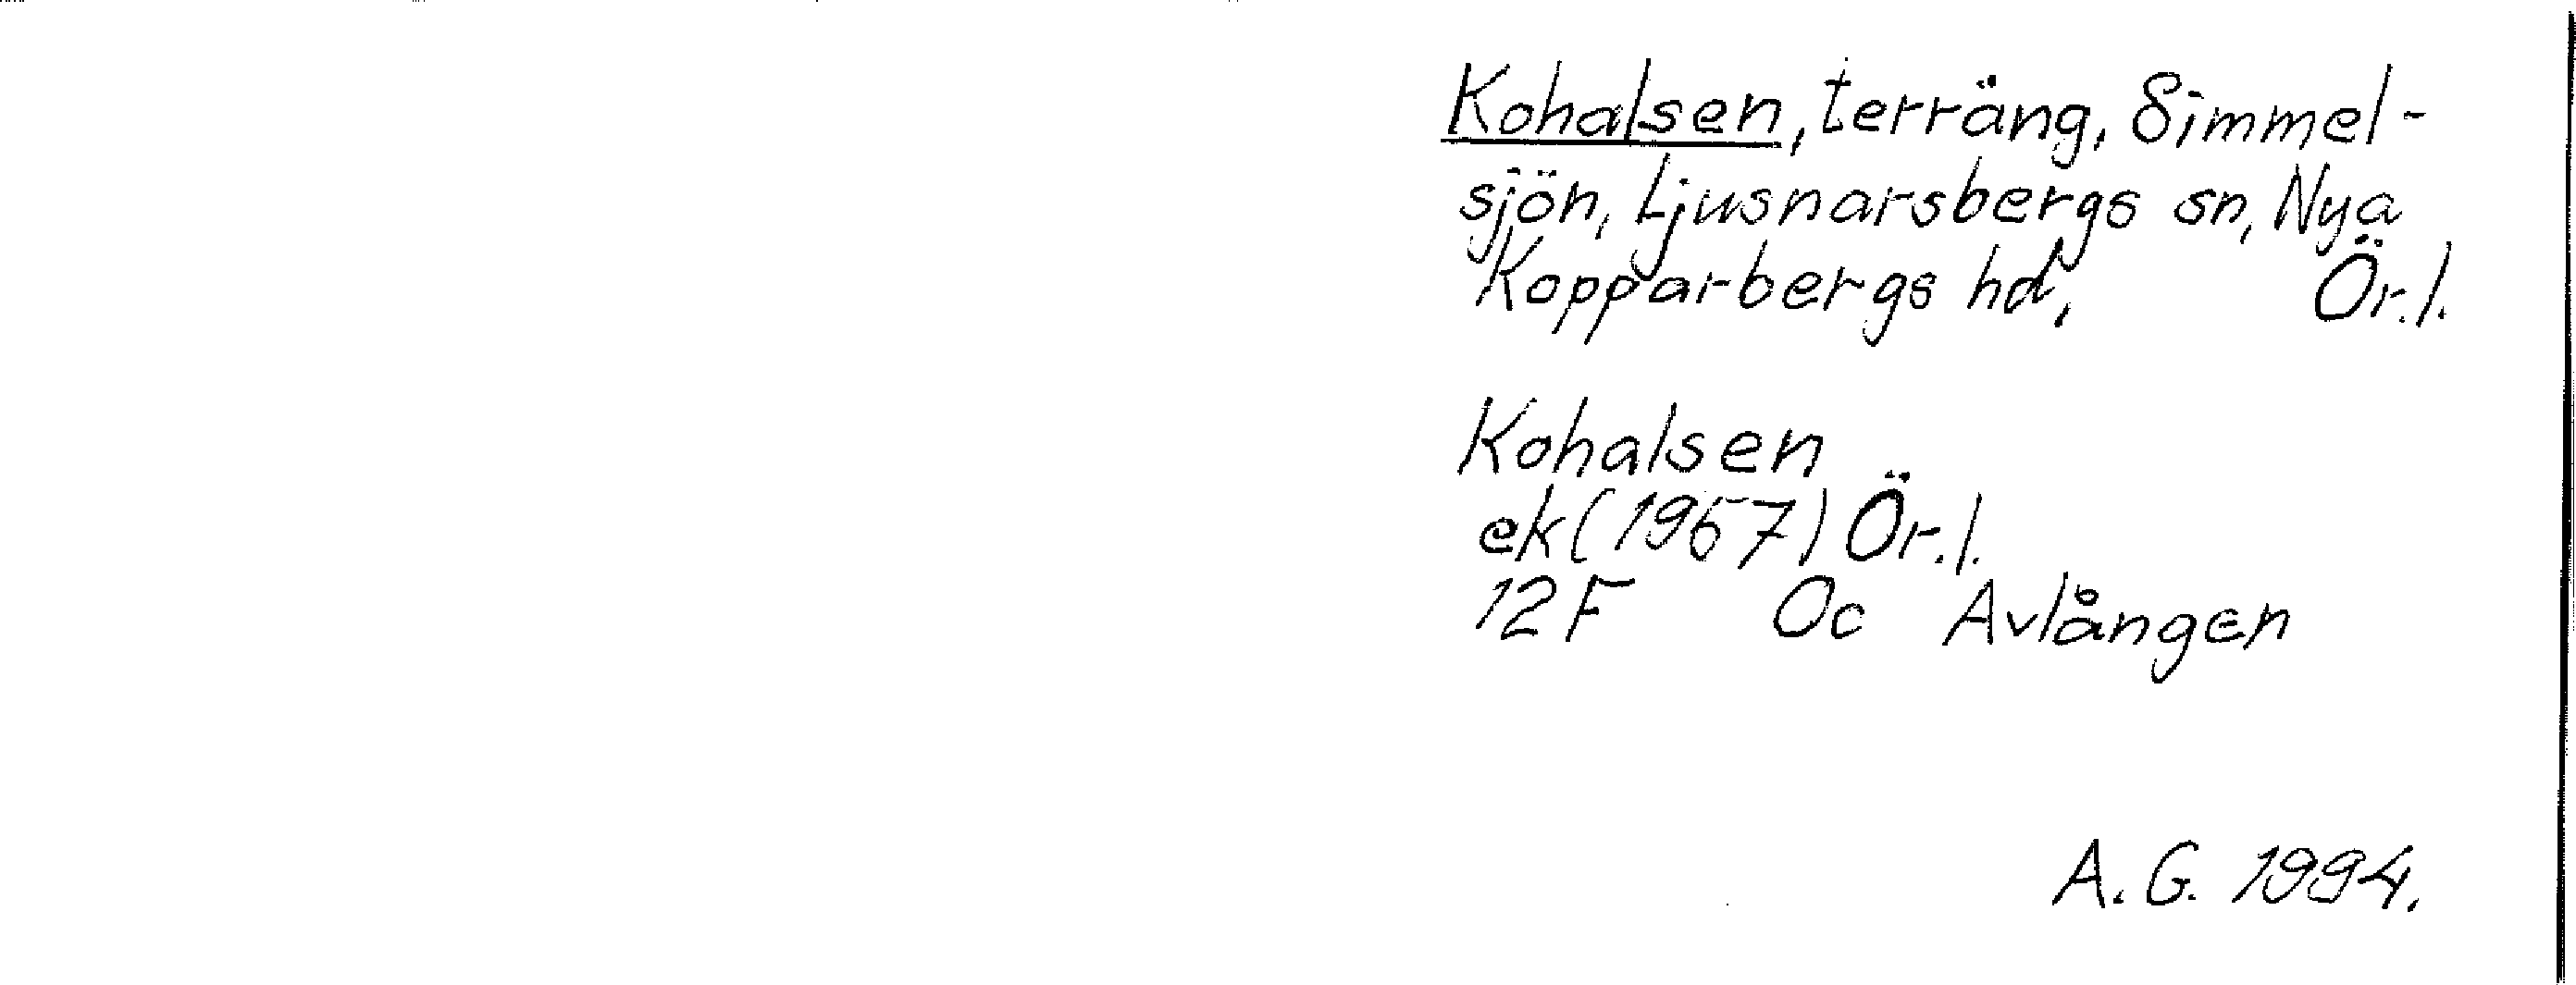 Kohalsen, terräng, Simmel-
sjön, Ljusnarsbergs sn, Nya
Kopparbergs hd, Ör.l.
Kohalsen
ek (1967) Ör.l.
12F 0c Avlången
A.G. 1994.